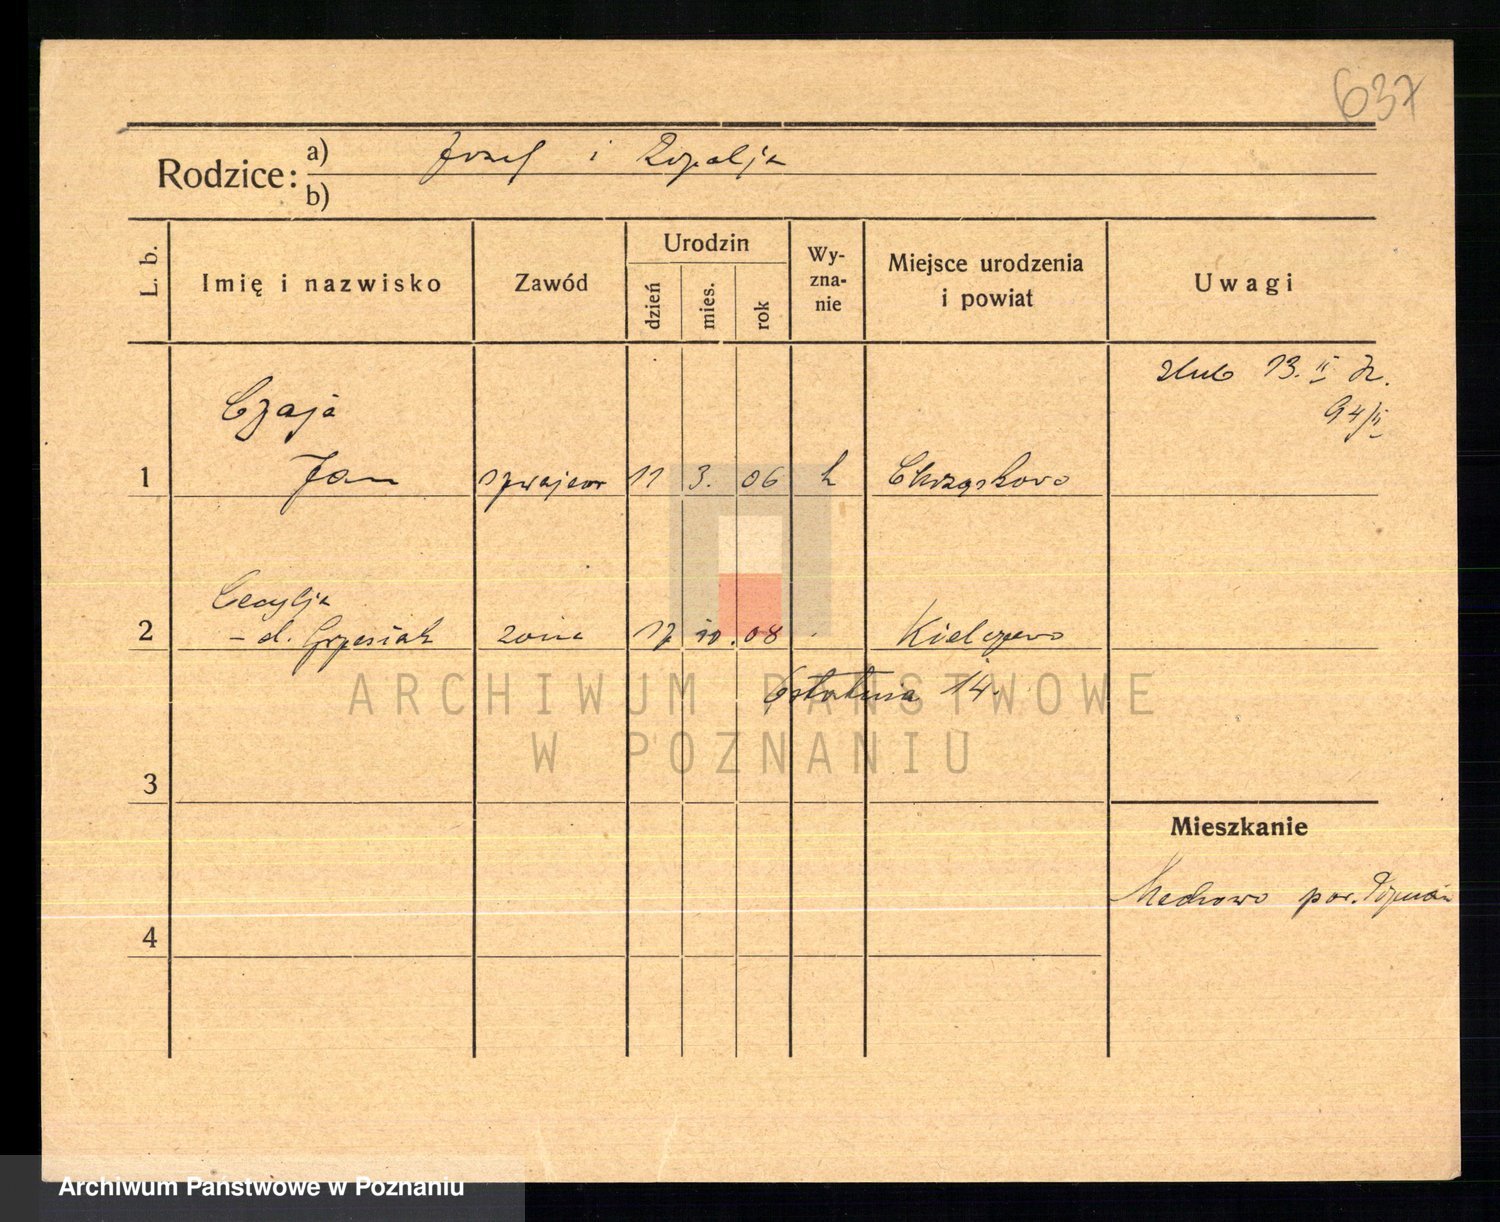 637
Rodzice:
a) Józef i Rozalja
b)
L. b.
Imię i nazwisko
Zawód
Urodzin
dzień
mies.
rok
Wy-
zna-
nie
Miejsce urodzenia
i powiat
Uwagi
ślub 13. II
94/II
Czaja
1 Jan szwajcar 11 3. 06 k Chrząstowo
Cecylja
2 – d. Grzesiak żona 17 10. 08 Kiełczewo
Ostatnia 14.
3
Mieszkanie
Mechowo pow. Poznań
4
ARCHIWUM PAŃSTWOWE
W POZNANIU
Archiwum Państwowe w Poznaniu